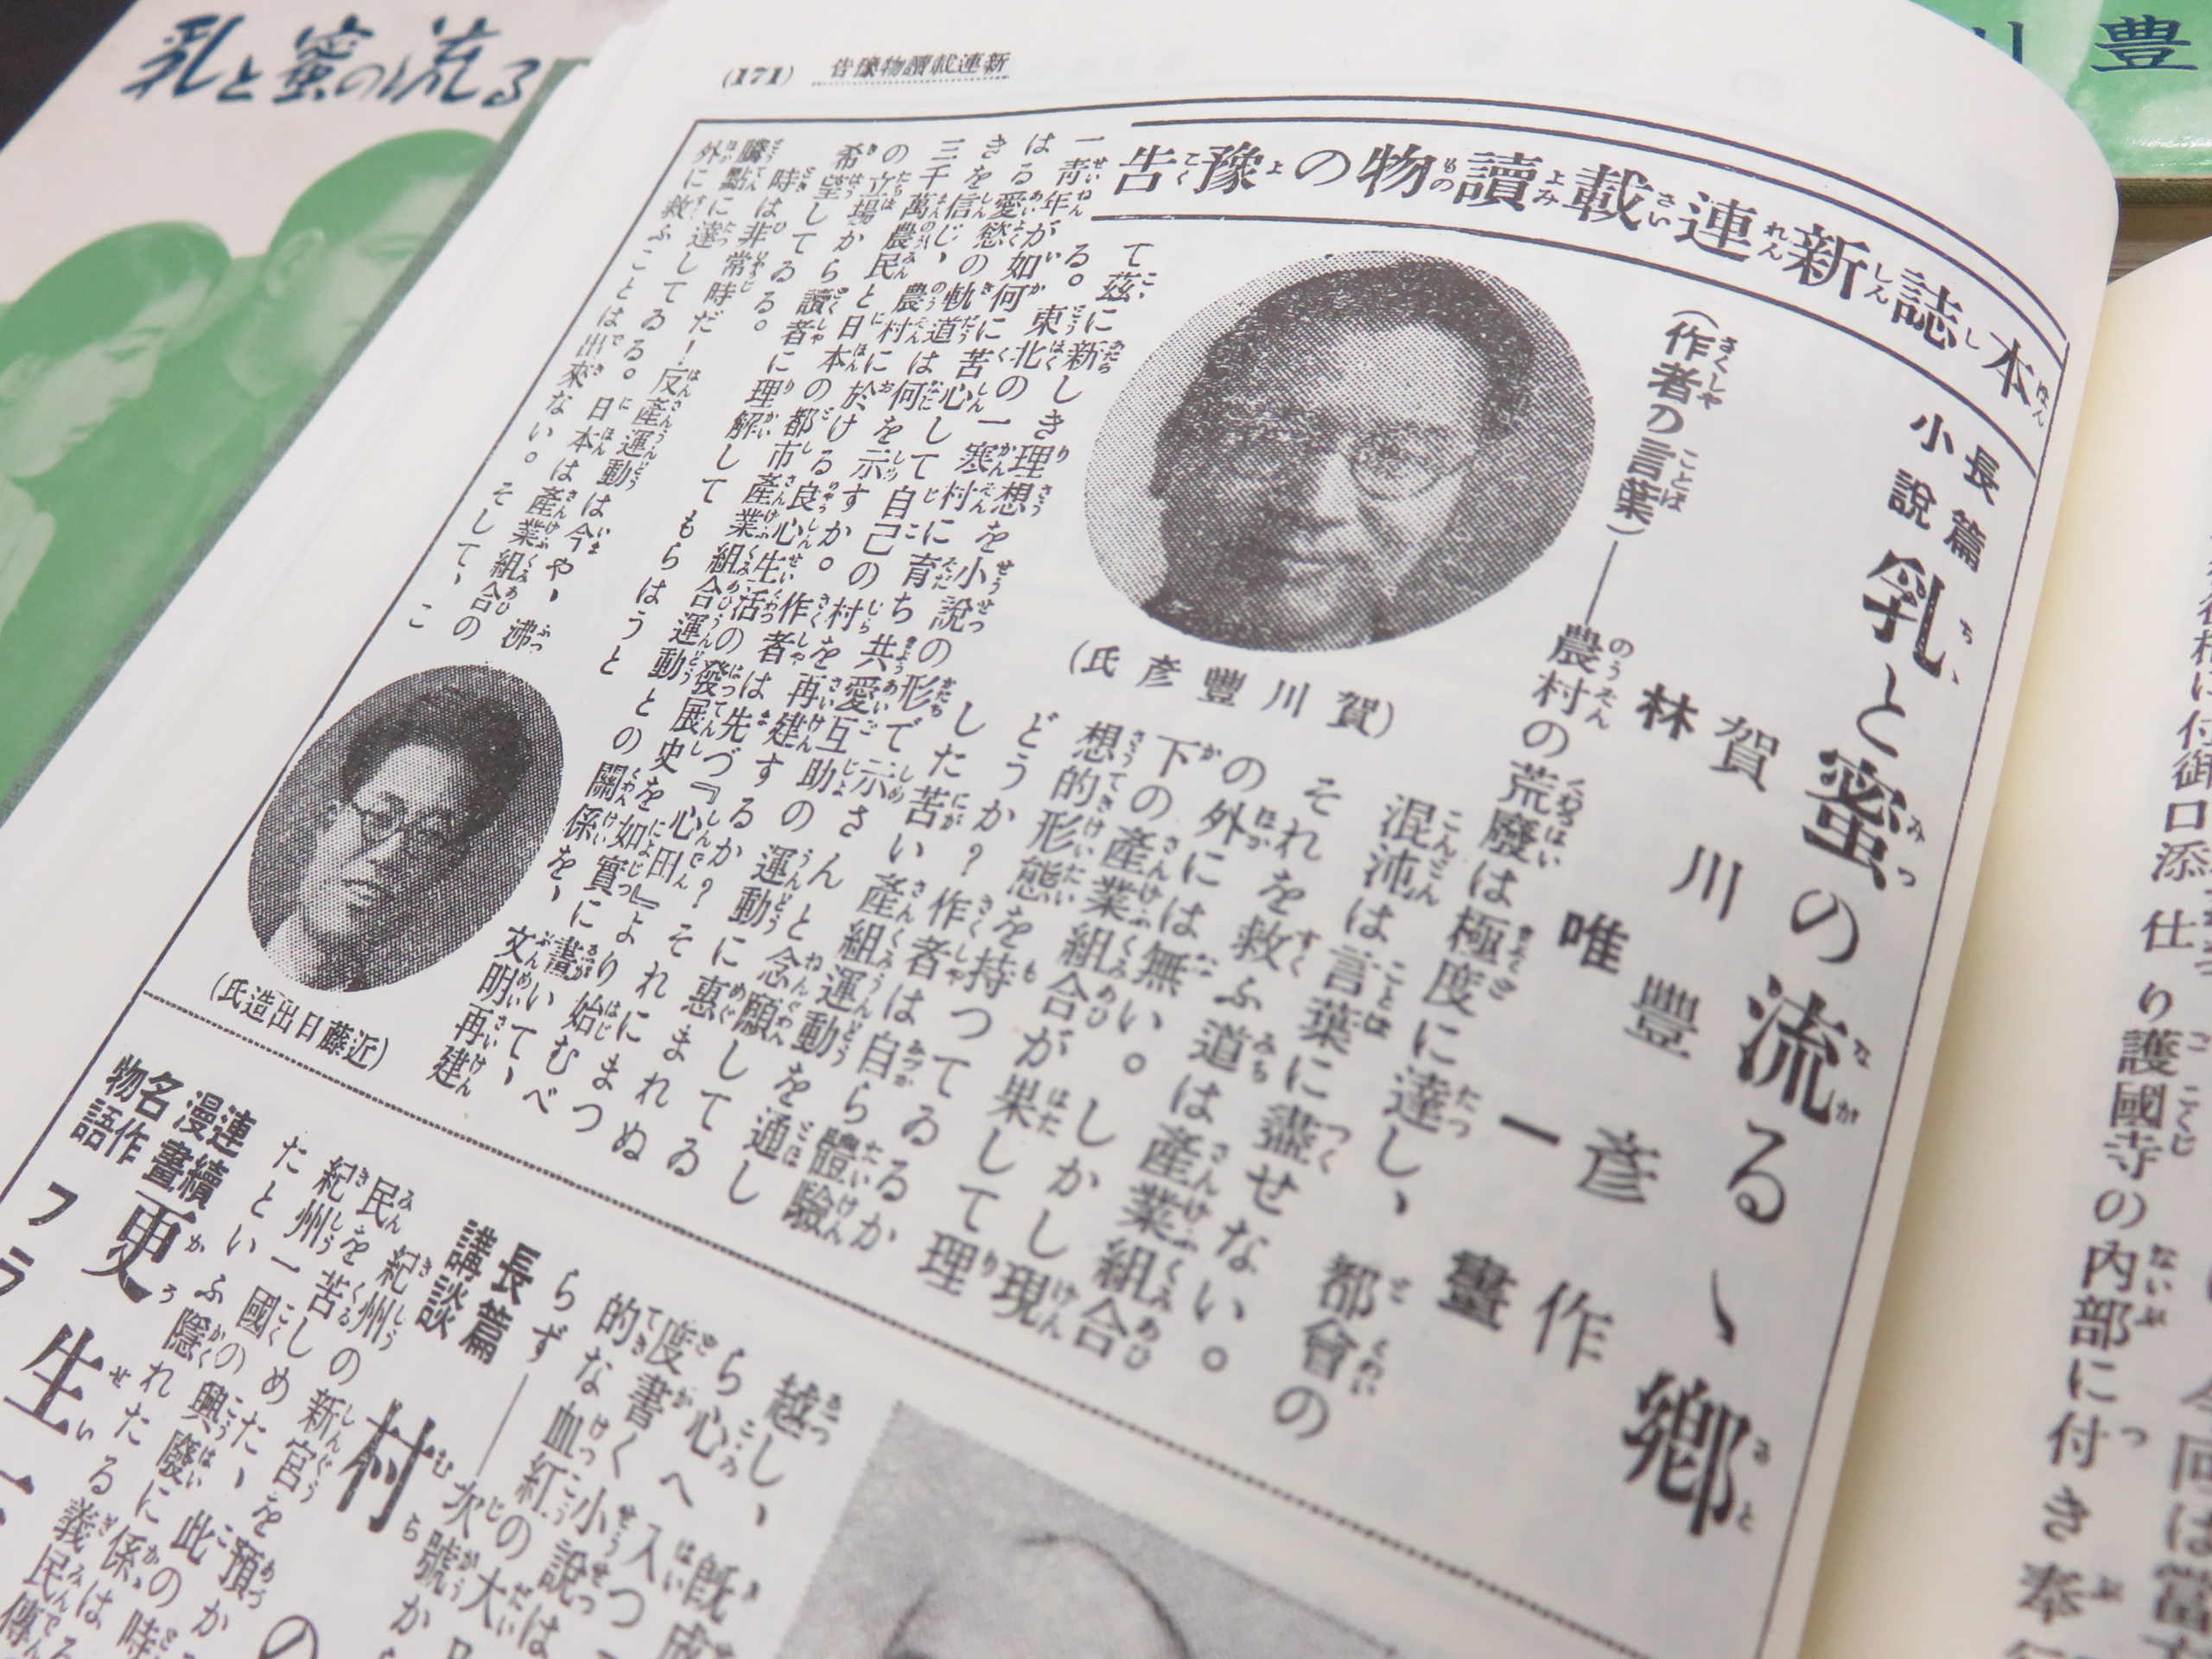 乳と蜜の流る
川豊
(171)
新連載讀物豫告
本誌新連載讀物の豫告
長篇小說
乳と蜜の流るゝ郷
賀川豐彥作
林唯一畫
(作者の言葉)——農村の荒廢は極度に達し、都會の
混沌は言葉に盡せない。
それを救ふ道は產業組合
の外には無い。しかし現
下の產業組合が果して理
想的形態を持つてゐるか
どうか？作者は自ら體驗
した苦い產組運動を通し
て茲に新しき理想を小說の形で示さんと念願してゐ
る。東北の一寒村に育ち共愛互助の運動に惠まれぬ
一青年が如何に苦心して自己の村を再建するか？それにまつ
はる愛慾の軌道は何を示すか。作者は先づ『心田』より始むべ
きを信じ、農村に於ける良心生活の發展史を如實に書いて、
三千萬農民と日本の都市產業組合運動との關係を、文明再建
の立場から讀者に理解してもらはうと
希望してゐる。
時は非常時だ！反產運動は今や、沸
騰點に達してゐる。日本は產業組合の
外に救ふことは出來ない。そして、こ
(賀川豐彥氏)
(近藤日出造氏)
越し、既
ら心へ入つ
度書く小說は
的な血紅の大
らず——次號から
長篇講談
村
紀州の新宮を預か
民を苦しめた、此の時
紀州一國の興廢に係は
たといふ隱れたる義民傳
連續漫畫
名作物語
更生
フラ
付御口添仕
り護國寺の内部に付き奉
今回は當